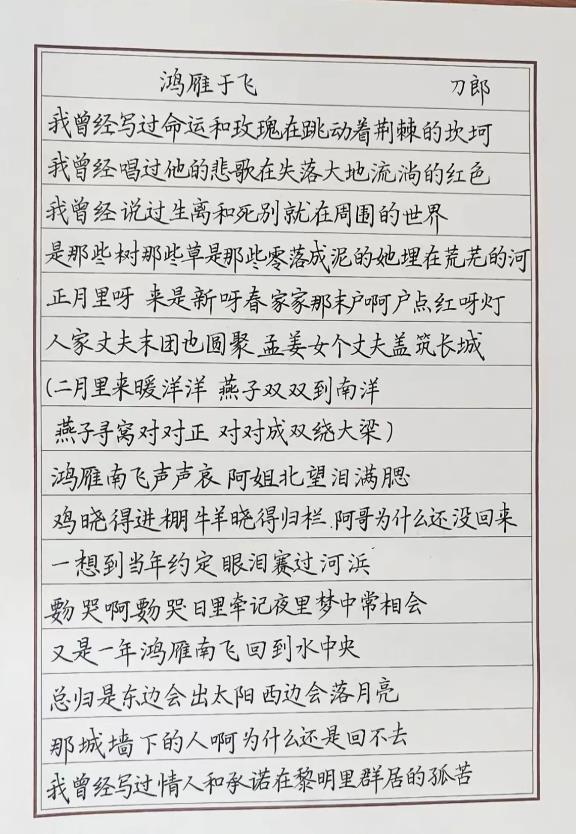 鸿雁于飞 刀郎
我曾经写过命运和玫瑰在跳动着荆棘的坎坷
我曾经唱过他的悲歌在失落大地流淌的红色
我曾经说过生离和死别就在周围的世界
是那些树那些草是那些零落成泥的她埋在荒芜的河
正月里呀 来是新呀春 家家那末户啊户点红呀灯
人家丈夫末团也圆聚 孟姜女个丈夫盖筑长城
(二月里来暖洋洋 燕子双双到南洋
燕子寻窝对对正 对对成双绕大梁)
鸿雁南飞声声哀 阿姐北望泪满腮
鸡晓得进棚 牛羊晓得归栏.阿哥为什么还没回来
一想到当年约定 眼泪赛过河浜
覅哭啊覅哭 日里牵记夜里梦中常相会
又是一年鸿雁南飞 回到水中央
总归是东边会出太阳 西边会落月亮
那城墙下的人啊为什么还是回不去
我曾经写过情人和承诺在黎明里群居的孤苦